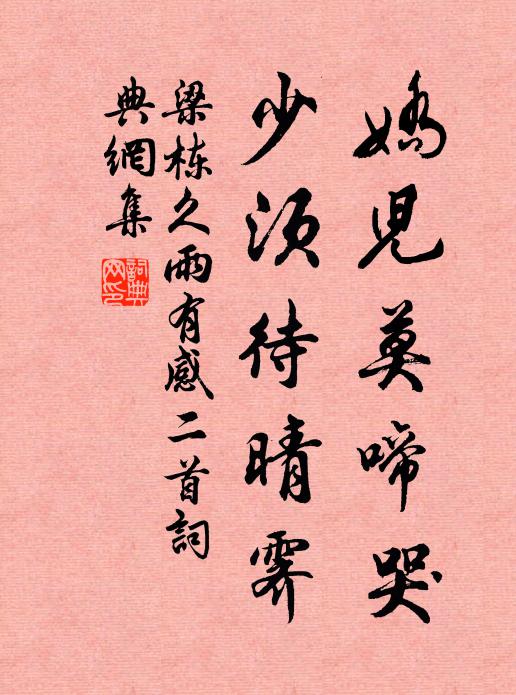 嬌児莫啼哭
少須待晴霽
梁栋久雨有感二首詞
典網集
詞典网印